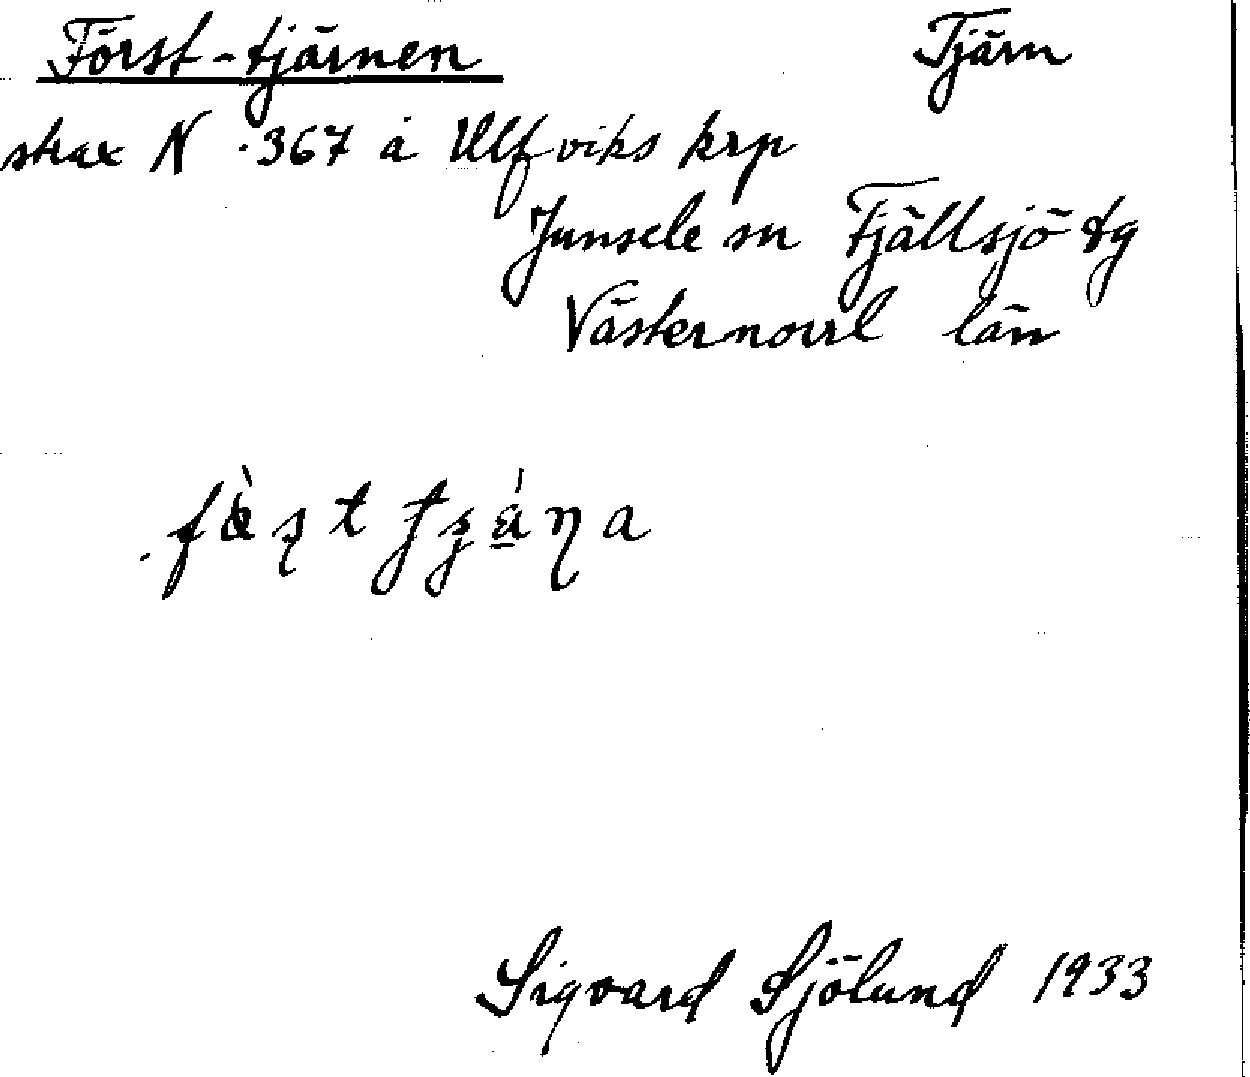 Först-tjärnen Tjärn
strax N .367 å Ulfviks krp
Junsele sn Fjällsjö tg
Västernorrl län
Sigvard Sjölund 1933